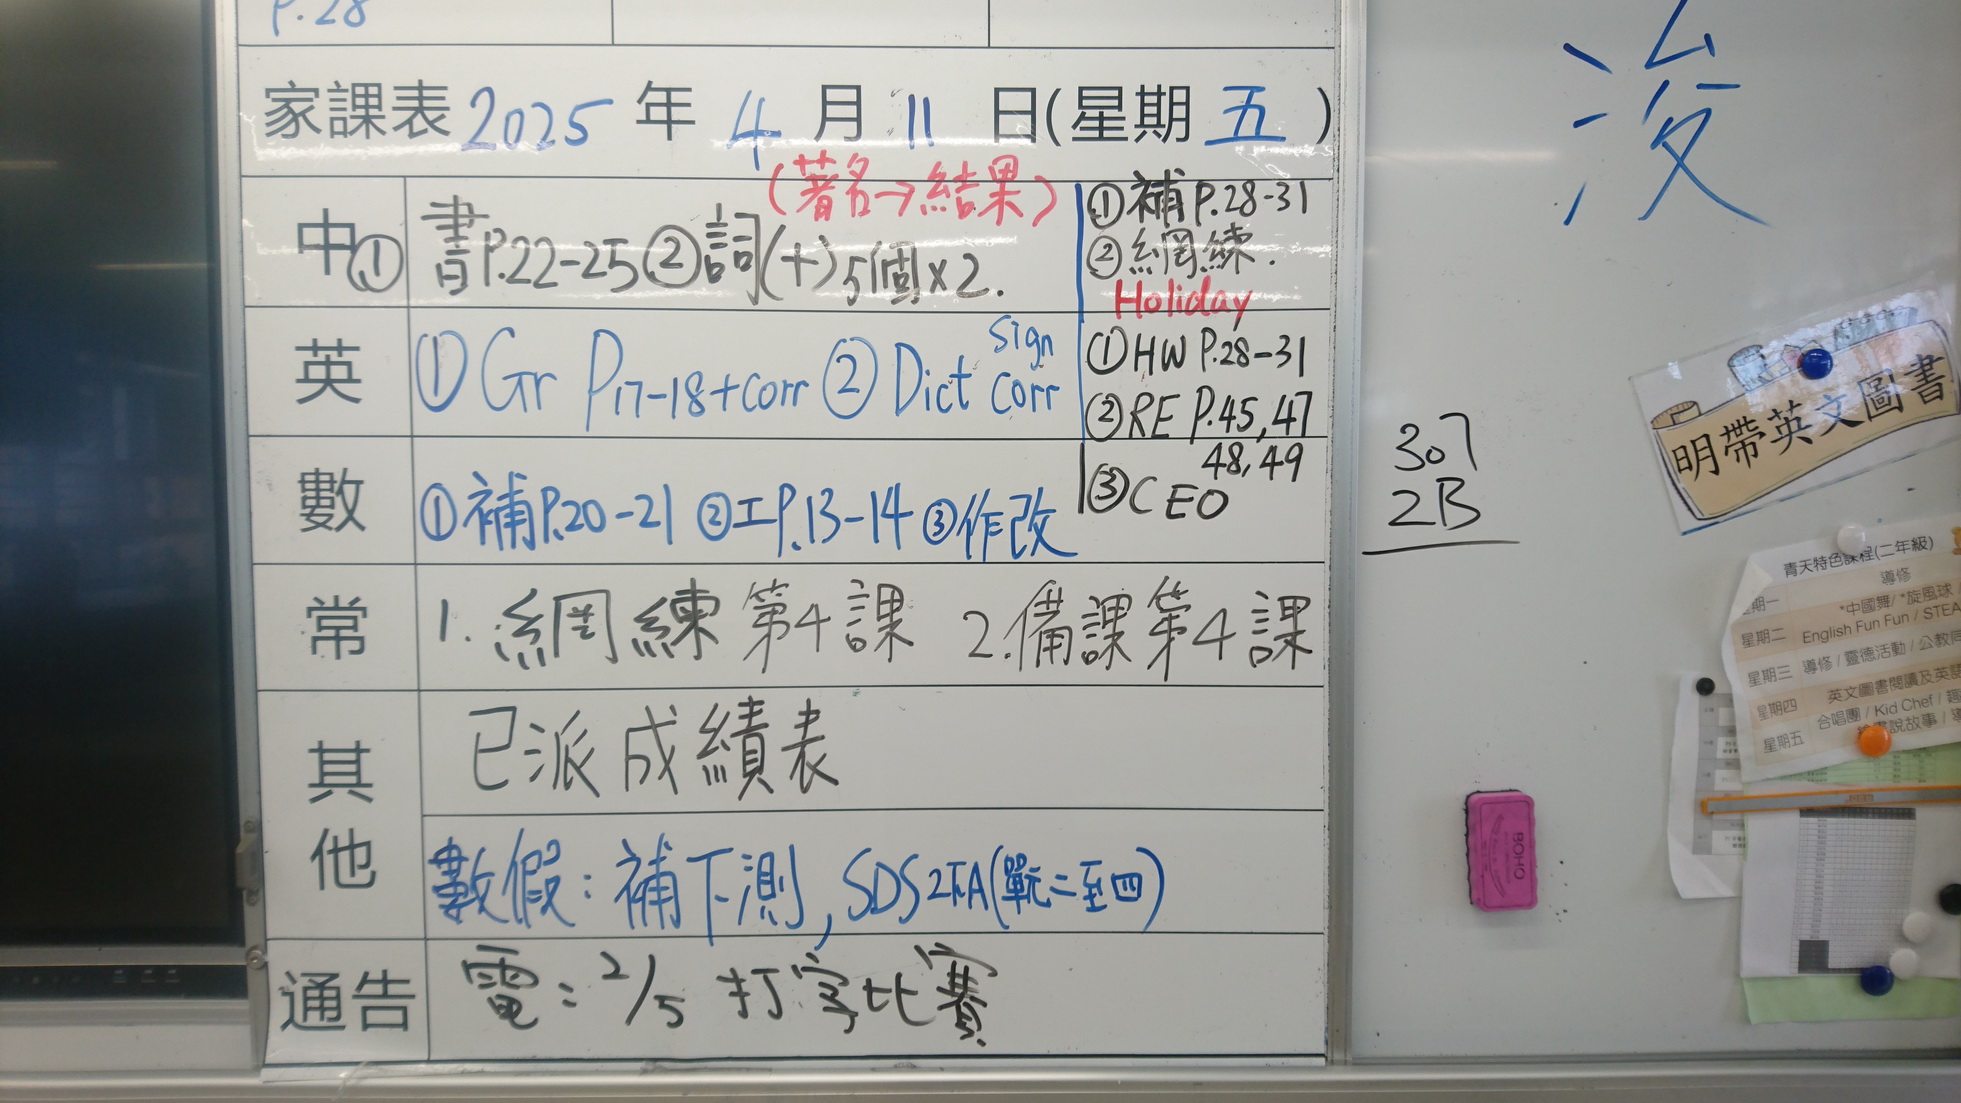 P.28
家課表 2025 年 4 月 11 日(星期 五 )
(著名→結果)
中 ① 書P.22-25 ② 詞(十) 5個×2.
① 補 P.28-31
② 網練.
Holiday
英 ① Gr P17-18+corr ② Dict corr
sign
① HW P.28-31
② RE P.45,47
48,49
③ CEO
數 ① 補P.20-21 ② 工P.13-14 ③ 作改
常 1. 網練第4課 2. 備課第4課
其他
已派成績表
數假: 補下測, SDS2下A(單元二至四)
通告 電: 2/5 打字比賽
浚
307
2B
明帶英文圖書
青天特色課程(二年級)
導修
星期一
*中國舞/ *旋風球
星期二 English Fun Fun / STEA
星期三 導修 / 靈德活動 / 公教
星期四 英文圖書閱讀及英
合唱團 / Kid Chef /
星期五 說故事 /
BOHO